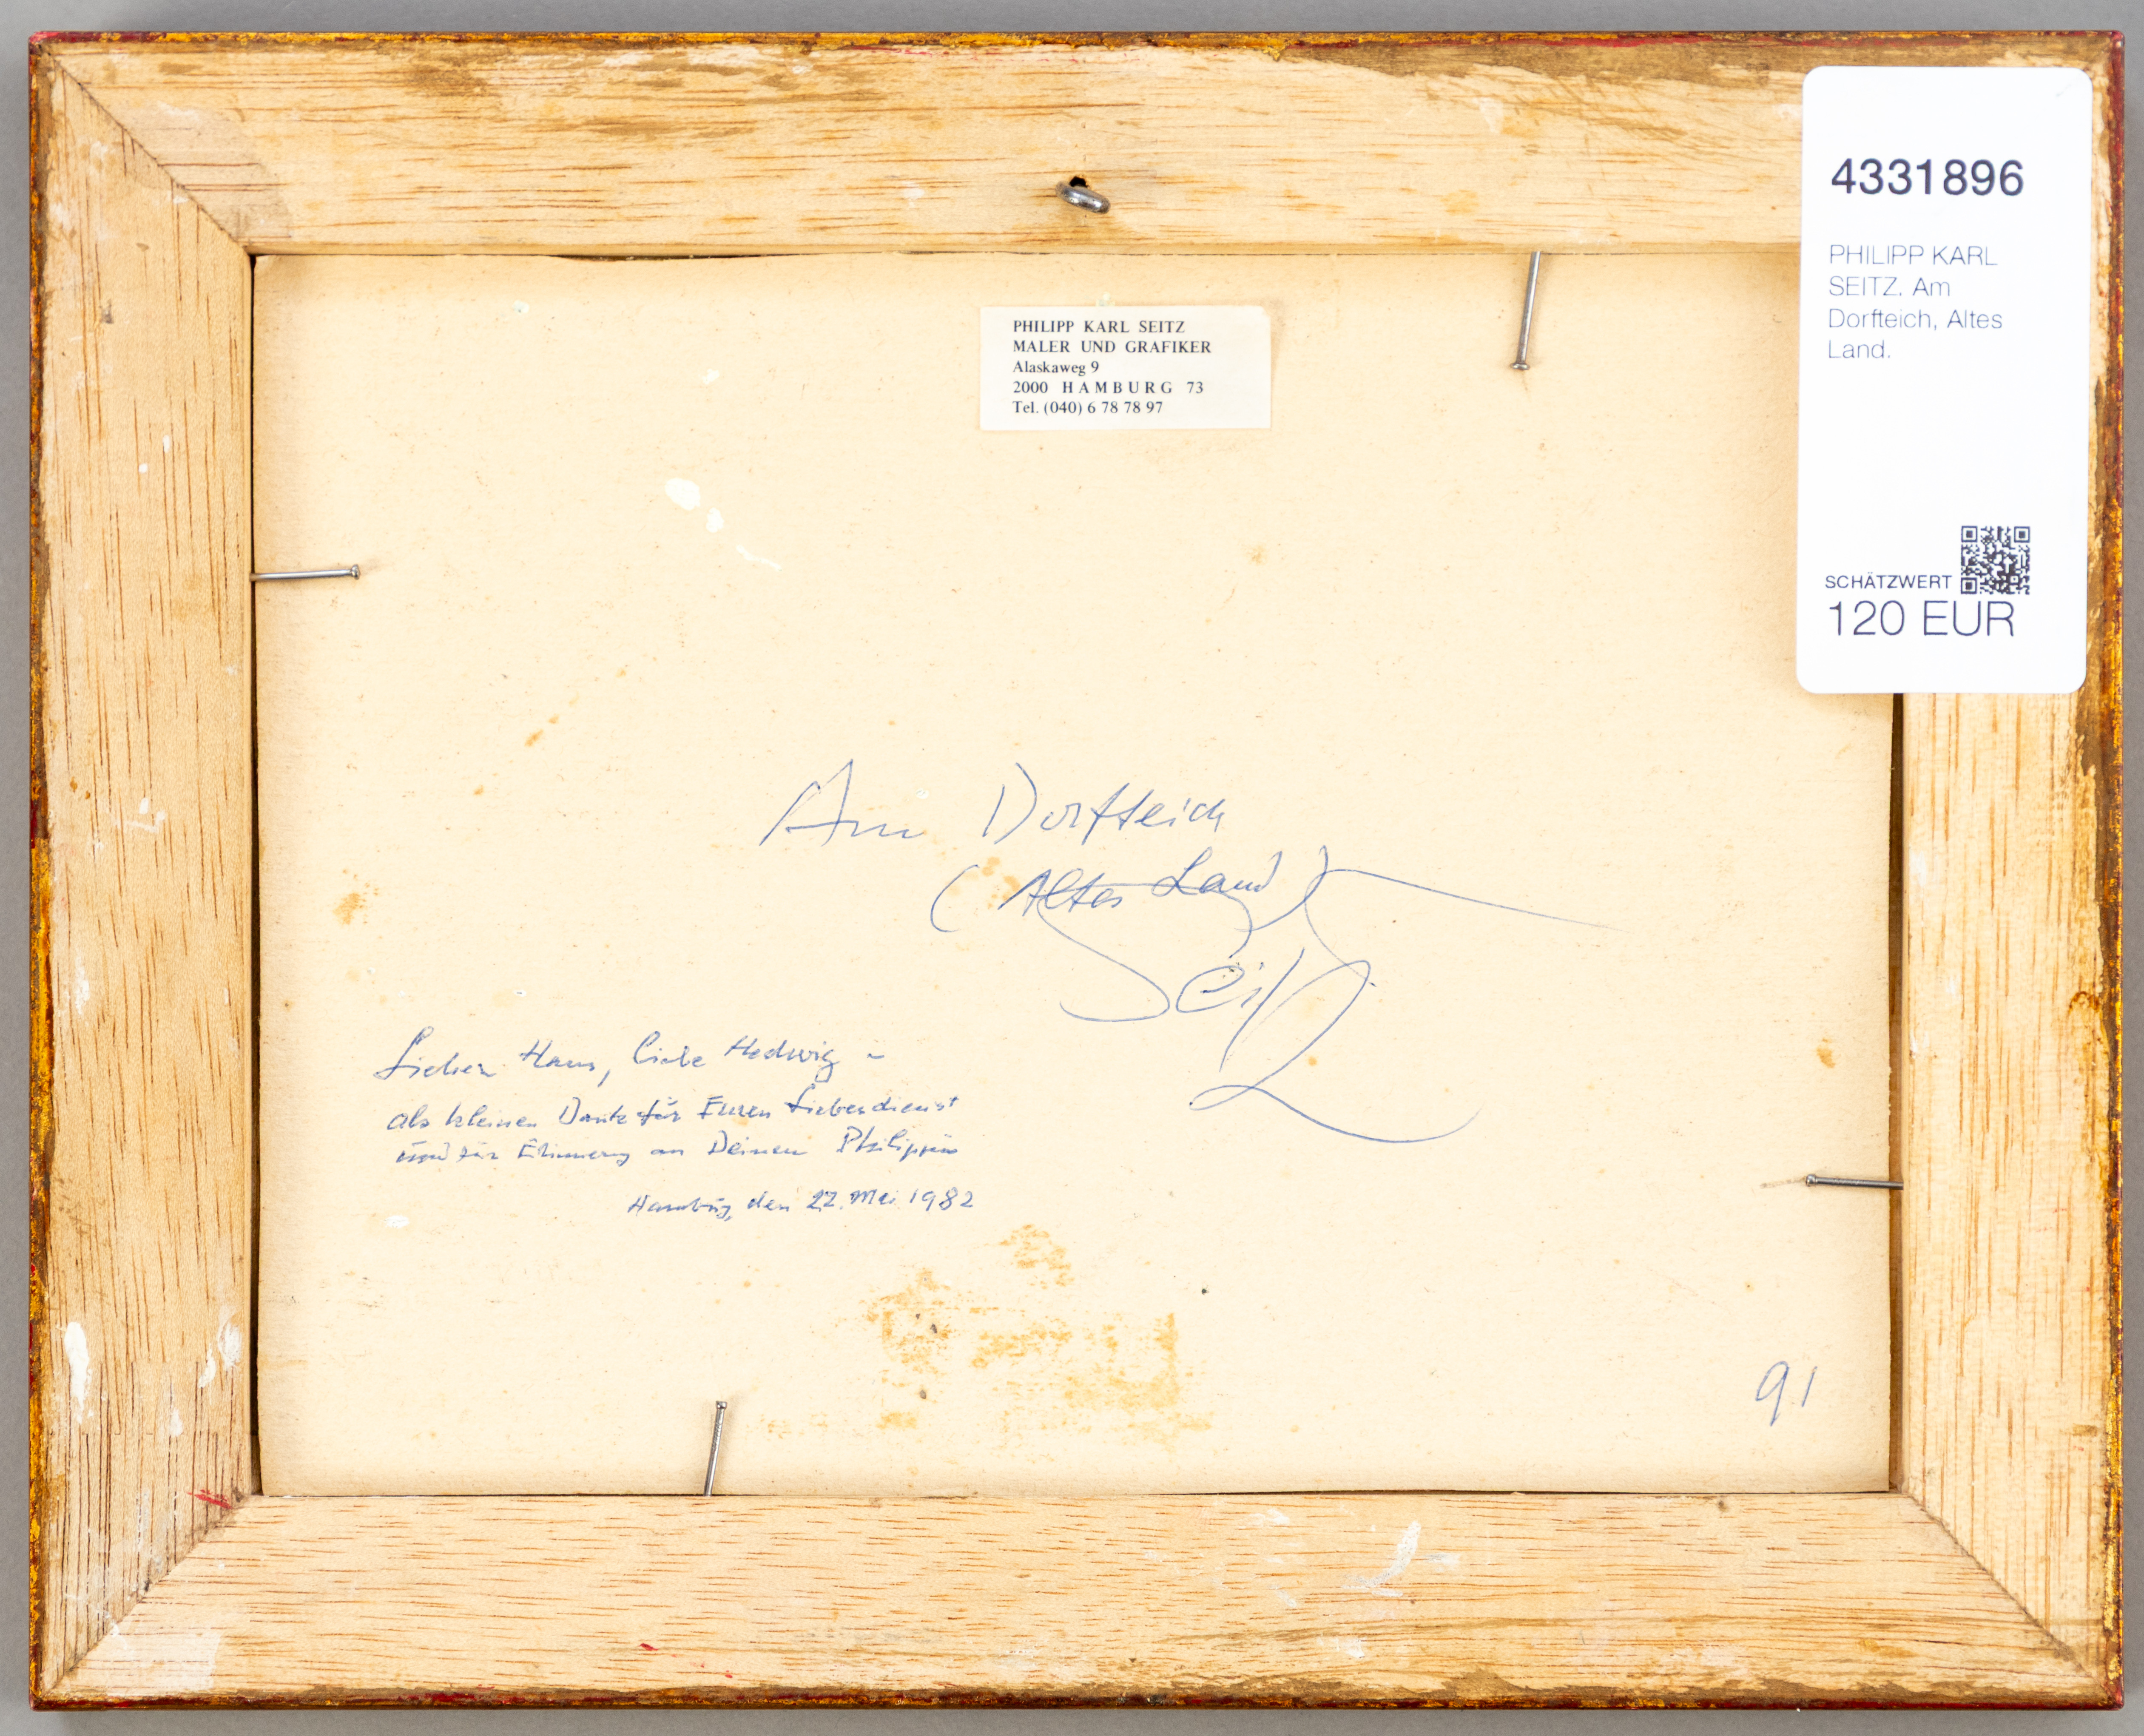 4331896
PHILIPP KARL
SEITZ. Am
Dorfteich, Altes
Land.
SCHÄTZWERT
120 EUR
PHILIPP KARL SEITZ
MALER UND GRAFIKER
Alaskaweg 9
2000 HAMBURG 73
Tel. (040) 6 78 78 97
Am Dorfteich
(Altes Land)
Seitz
Lieber Hans, liebe Hedwig -
als kleinen Dank für Euren Liebesdienst
und zur Erinnerung an Deinen
Hamburg, den 22. Mai 1982
91